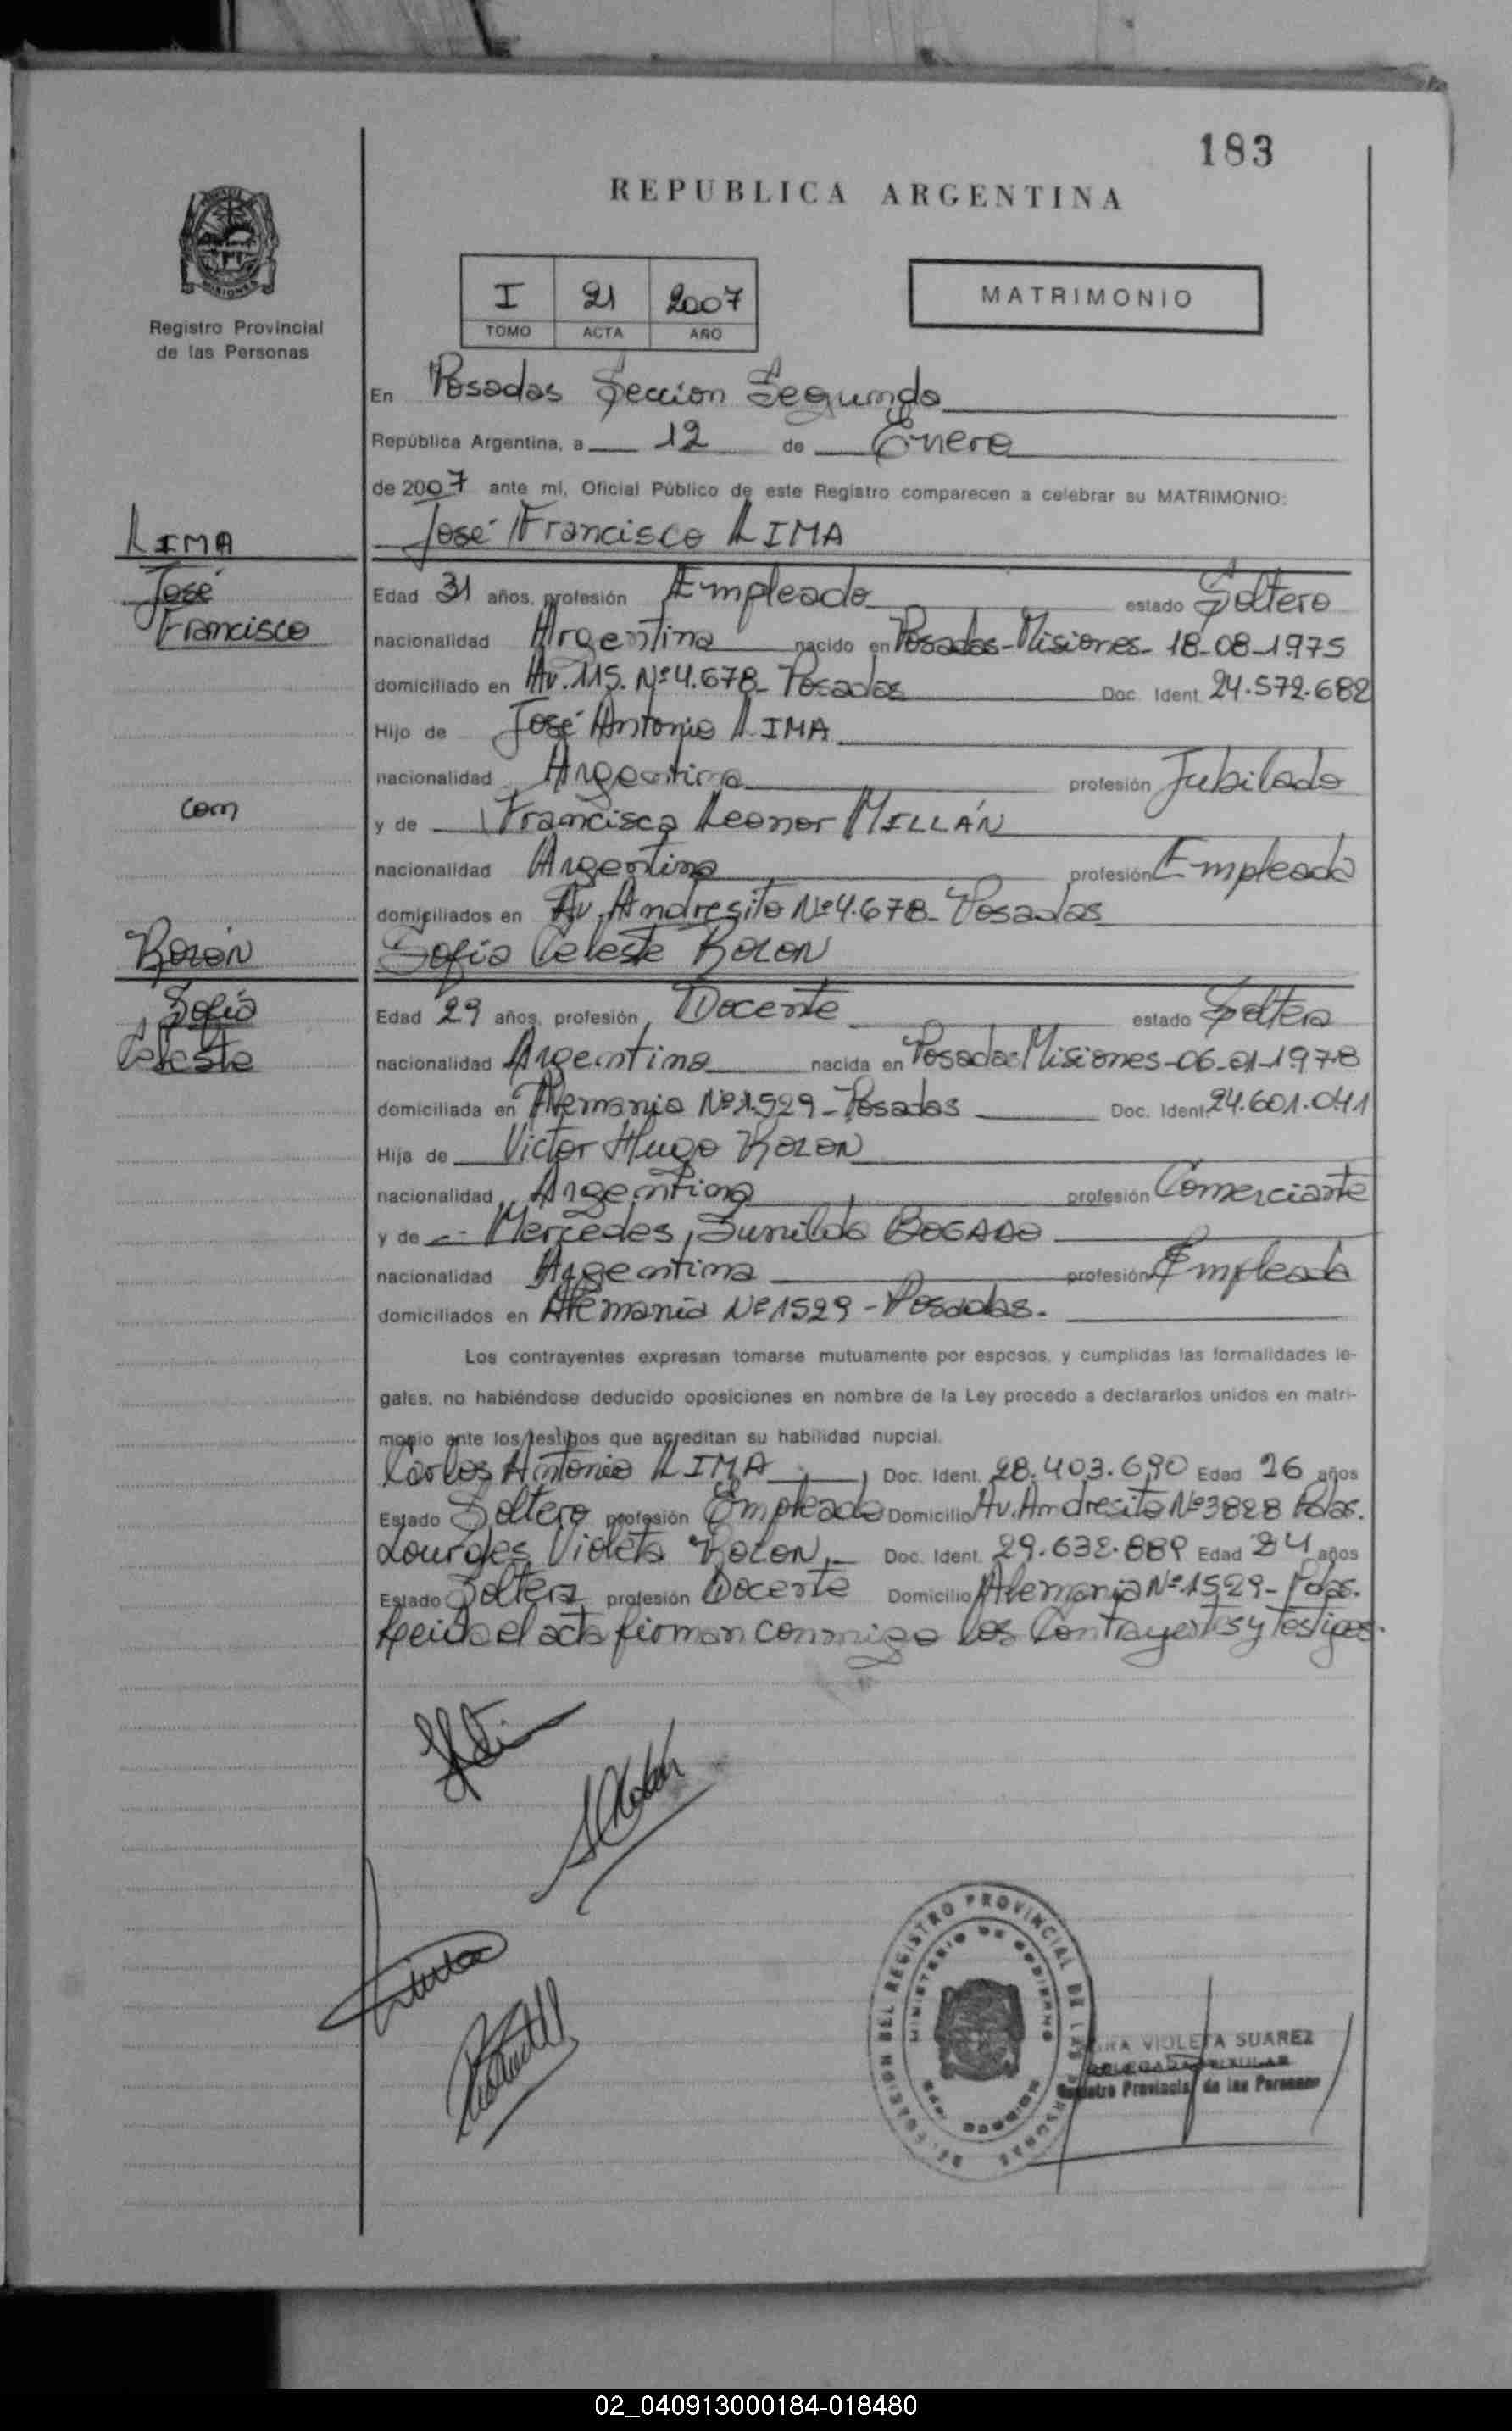 183
REPUBLICA ARGENTINA
MISIONES
Registro Provincial
de las Personas
I 21 2007
TOMO ACTA AÑO
MATRIMONIO
En Posadas Sección Segunda
República Argentina, a 12 de Enero
de 2007 ante mí, Oficial Público de este Registro comparecen a celebrar su MATRIMONIO:
LIMA
José Francisco LIMA
José
Francisco
Edad 31 años, profesión Empleado estado Soltero
nacionalidad Argentina nacido en Posadas-Misiones- 18-08-1975
domiciliado en Av. 115. Nº 4.678- Posadas Doc. Ident. 24.572.682
Hijo de José Antonio LIMA
nacionalidad Argentina profesión Jubilado
con
y de Francisca Leonor MILLÁN
nacionalidad Argentina profesión Empleada
domiciliados en Av. Andresito Nº 4.678- Posadas
Rolón
Sofía Celeste ROLON
Sofía
Celeste
Edad 29 años, profesión Docente estado Soltera
nacionalidad Argentina nacida en Posadas Misiones-06-01-1978
domiciliada en Alemania Nº 1.529- Posadas Doc. Ident. 24.601.041
Hija de Victor Hugo ROLON
nacionalidad Argentina profesión Comerciante
y de Mercedes Sunilda BOGADO
nacionalidad Argentina profesión Empleada
domiciliados en Alemania Nº 1529 - Posadas.
Los contrayentes expresan tomarse mutuamente por esposos, y cumplidas las formalidades le-
gales, no habiéndose deducido oposiciones en nombre de la Ley procedo a declararlos unidos en matri-
monio ante los testigos que acreditan su habilidad nupcial.
Carlos Antonio LIMA Doc. Ident. 28.403.690 Edad 26 años
Estado Soltero profesión Empleado Domicilio Av. Andresito Nº 3828 Pdas.
Lourdes Violeta ROLON Doc. Ident. 29.632.889 Edad 24 años
Estado Soltera profesión Docente Domicilio Alemania Nº 1529- Pdas.
Leida el acta firman conmigo los Contrayentes y testigos.
DELEGACION DEL REGISTRO PROVINCIAL DE LAS PERSONAS
MINISTERIO DE GOBIERNO
VIOLETA SUAREZ
DELEGADA TITULAR
Registro Provincial de las Personas
02_040913000184-018480